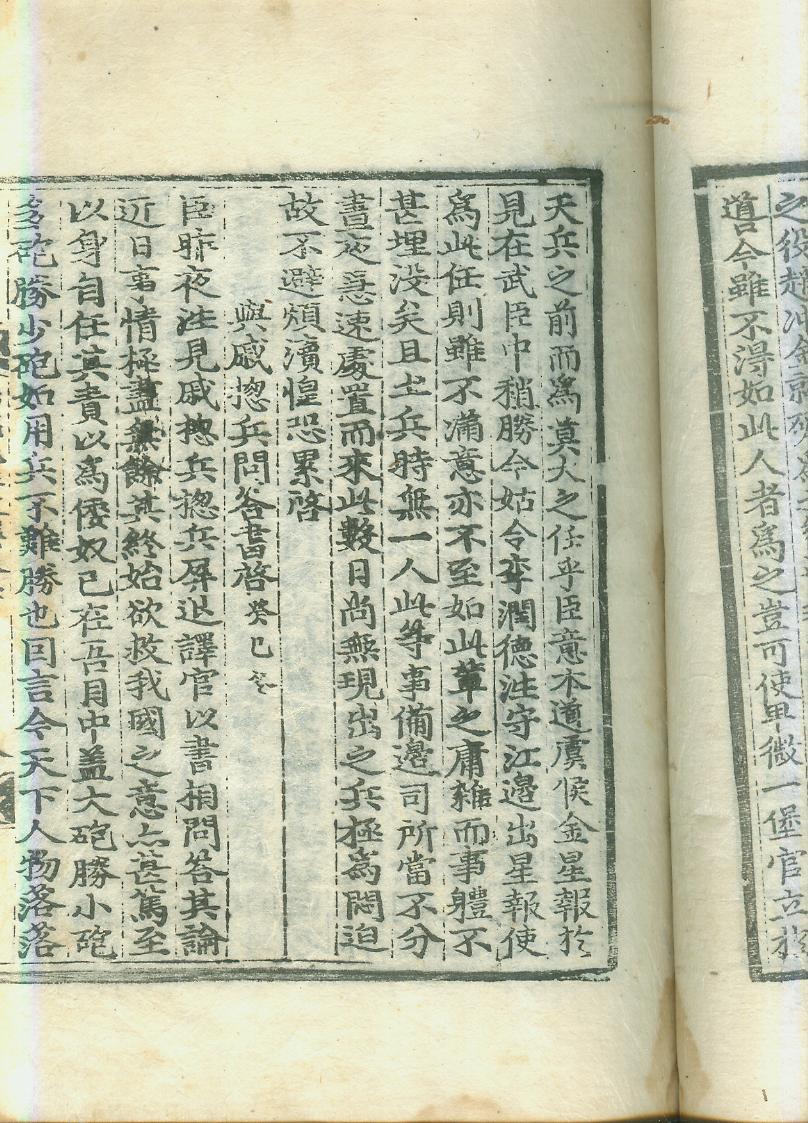 之役趙
道言今雖不得如此人者爲之豈可使卑微一堡官立於
天兵之前而爲莫大之任乎臣意本道虞候金星報於
見在武臣中稍勝今姑令李潤德往守江邊出星報使
爲此任則雖不滿意亦不至如此輩之庸雜而事軆不
甚埋没矣且土兵時無一人此等事備邊司所當不分
晝夜急速處置而來此數日尚無現出之兵極爲悶迫
故不避煩瀆惶恐累啓
與戚揔兵問答書啓癸巳冬
臣昨夜往見戚揔兵揔兵屏退譯官以書相問答其論
近日事情極盡無餘其終始欲救我國之意亦甚篤至
以身自任其責以爲倭奴已在吾目中盖大砲勝小砲
多砲勝少砲如用兵不難勝也回言今天下人物落落